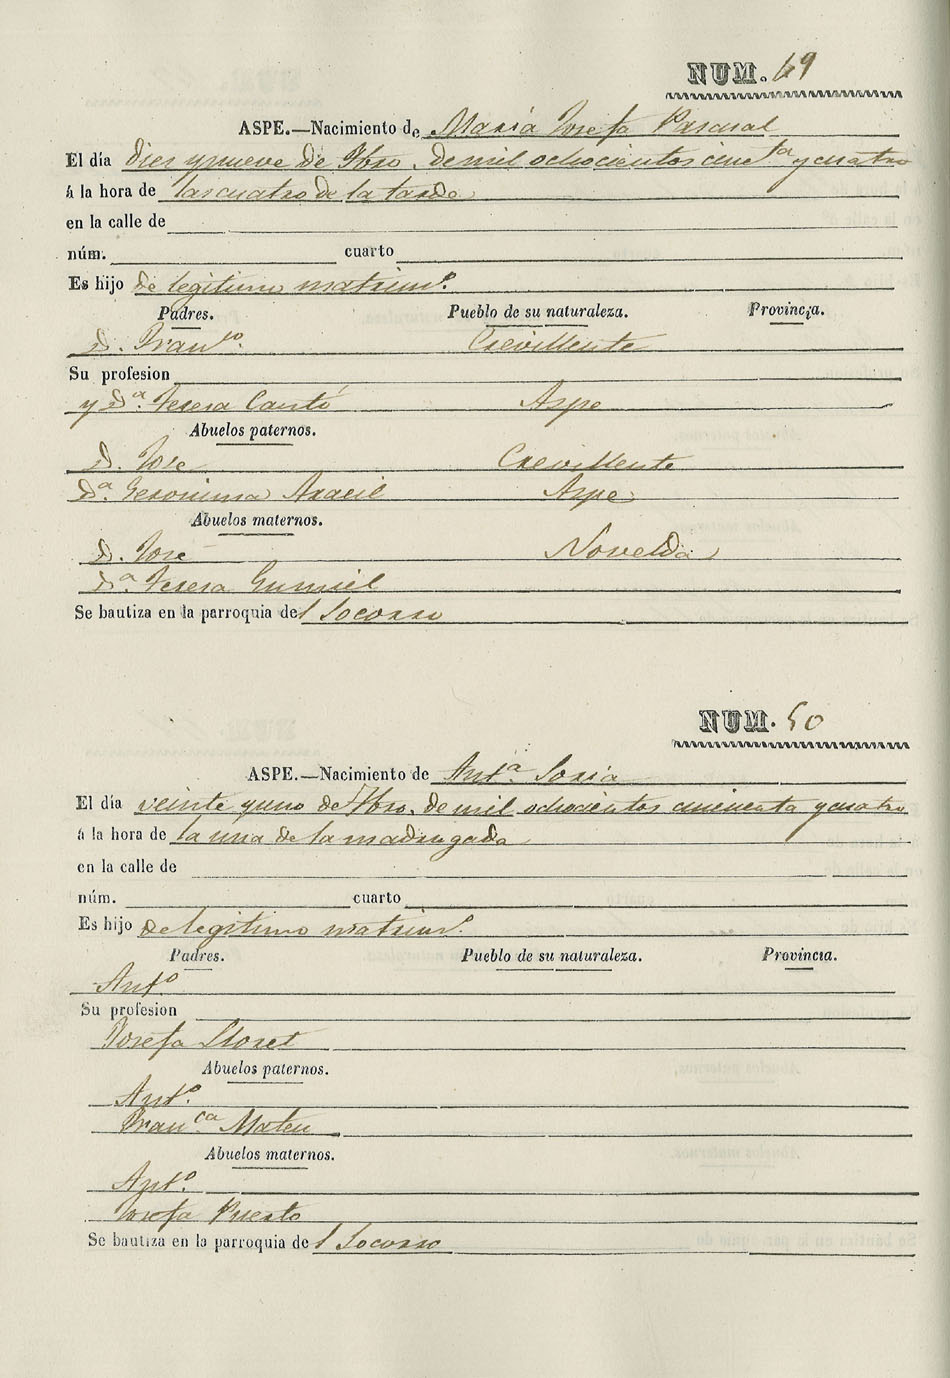 NUM. 49
ASPE.—Nacimiento de María Josefa Pascual
El día diez y nueve de 7bro. de mil ochocientos cincta y cuatro
á la hora de las cuatro de la tarde
en la calle de
núm. cuarto
Es hijo de legitimo matrimo.
Padres. Pueblo de su naturaleza. Provincia.
D. Franco. Crevillente
Su profesion
y Da. Teresa Cantó Aspe
Abuelos paternos.
D. Jose Crevillente
Da. Geronima Aracil Aspe
Abuelos maternos.
D. José Novelda
Da Teresa Gumiel
Se bautiza en la parroquia del Socorro
NUM. 50
ASPE.—Nacimiento de Anta. Soria
El día veinte y uno de 7bro. de mil ochocientos cincuenta y cuatro
á la hora de la una de la madrugada
en la calle de
núm. cuarto
Es hijo de legitimo matrimo.
Padres. Pueblo de su naturaleza. Provincia.
Anto
Su profesion
Josefa Lloret
Abuelos paternos.
Anto.
Franca Mateu
Abuelos maternos.
Anto.
Josefa Puerto
Se bautiza en la parroquia del Socorro